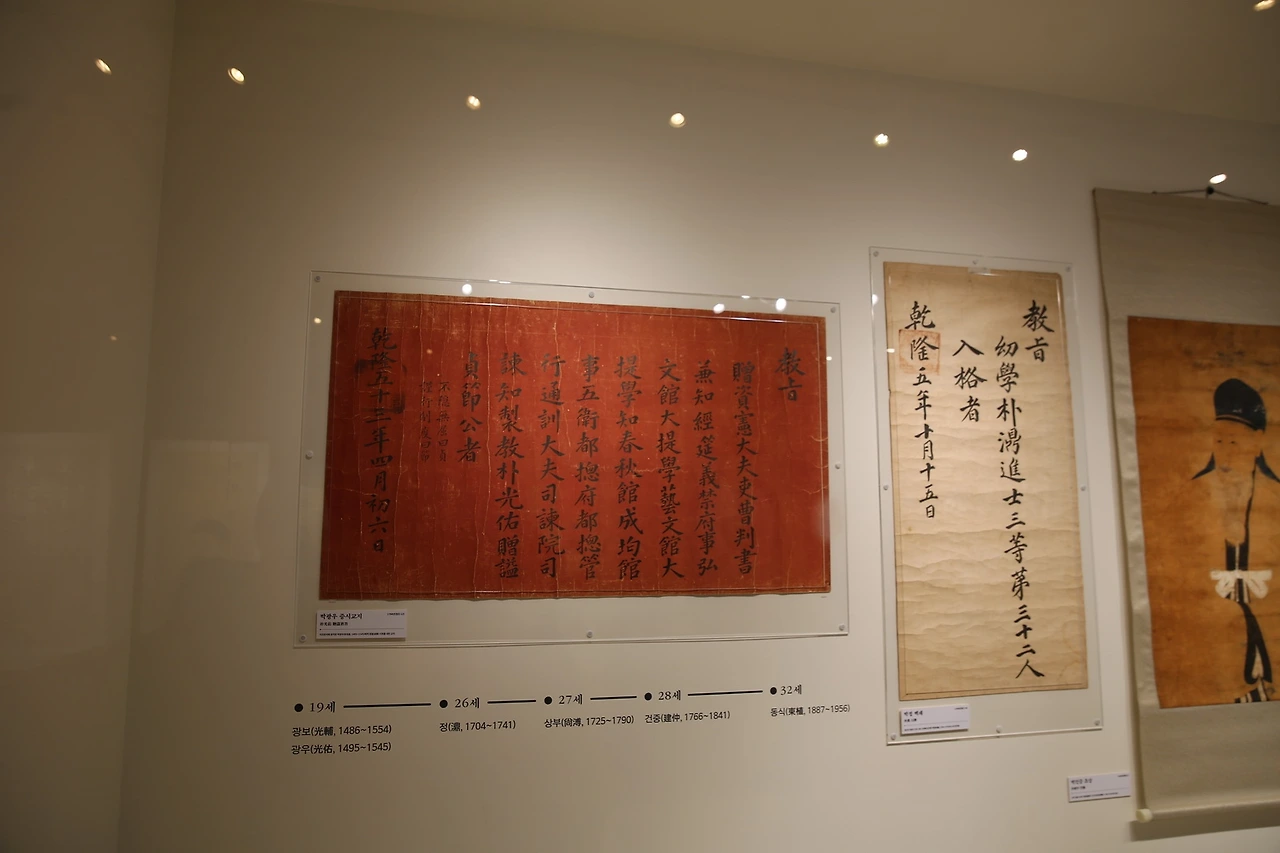 敎旨
贈資憲大夫吏曹判書
兼知經筵義禁府事弘
文館大提學藝文館大
提學知春秋館成均館
事五衛都摠府都摠管
行通訓大夫司諫院司
諫知製敎朴光佑贈諡
貞節公者
乾隆五十三年四月初六日
박광우 증시교지
敎旨
幼學朴
進士三等第三十二人
入格者
乾隆五年十月十五日
19세
광보(光輔, 1486~1554)
광우(光佑, 1495~1545)
26세
정(, 1704~1741)
27세
상부(尙溥, 1725~1790)
28세
건중(建仲, 1766~1841)
32세
동식(東植, 1887~1956)